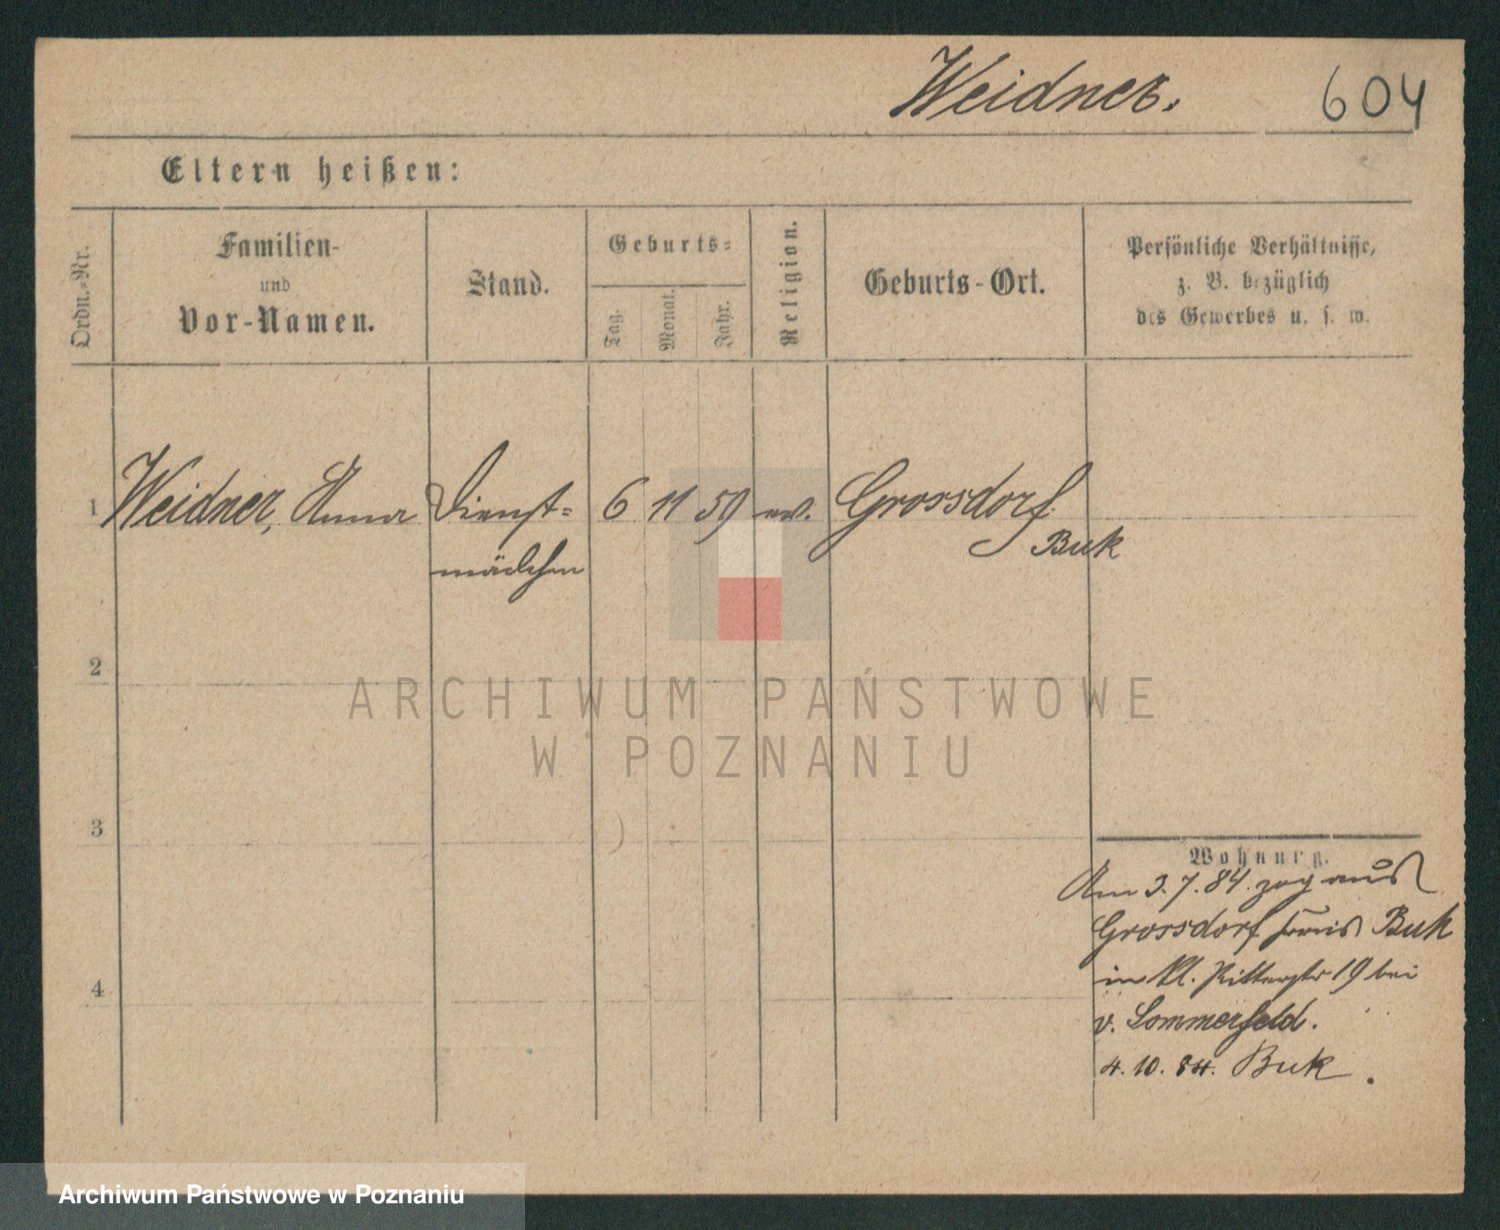 Weidner. 604
Eltern heißen:
Ordn.-Nr.
Familien-
und
Vor-Namen.
Stand.
Geburts-
Tag.
Monat.
Jahr.
Religion.
Geburts-Ort.
Persönliche Verhältnisse,
z. B. bezüglich
des Gewerbes u. s. w.
1 Weidner, Anna Dienst= 6 11 59 ev. Grossdorf
mädchen Buk
2
3
4
Wohnung.
Am 3.7.84. zog aus
Grossdorf Kreis Buk
in kl. Ritterstr 19 bei
v. Sommerfeld.
4. 10. 84. Buk.
ARCHIWUM PAŃSTWOWE
W POZNANIU
Archiwum Państwowe w Poznaniu